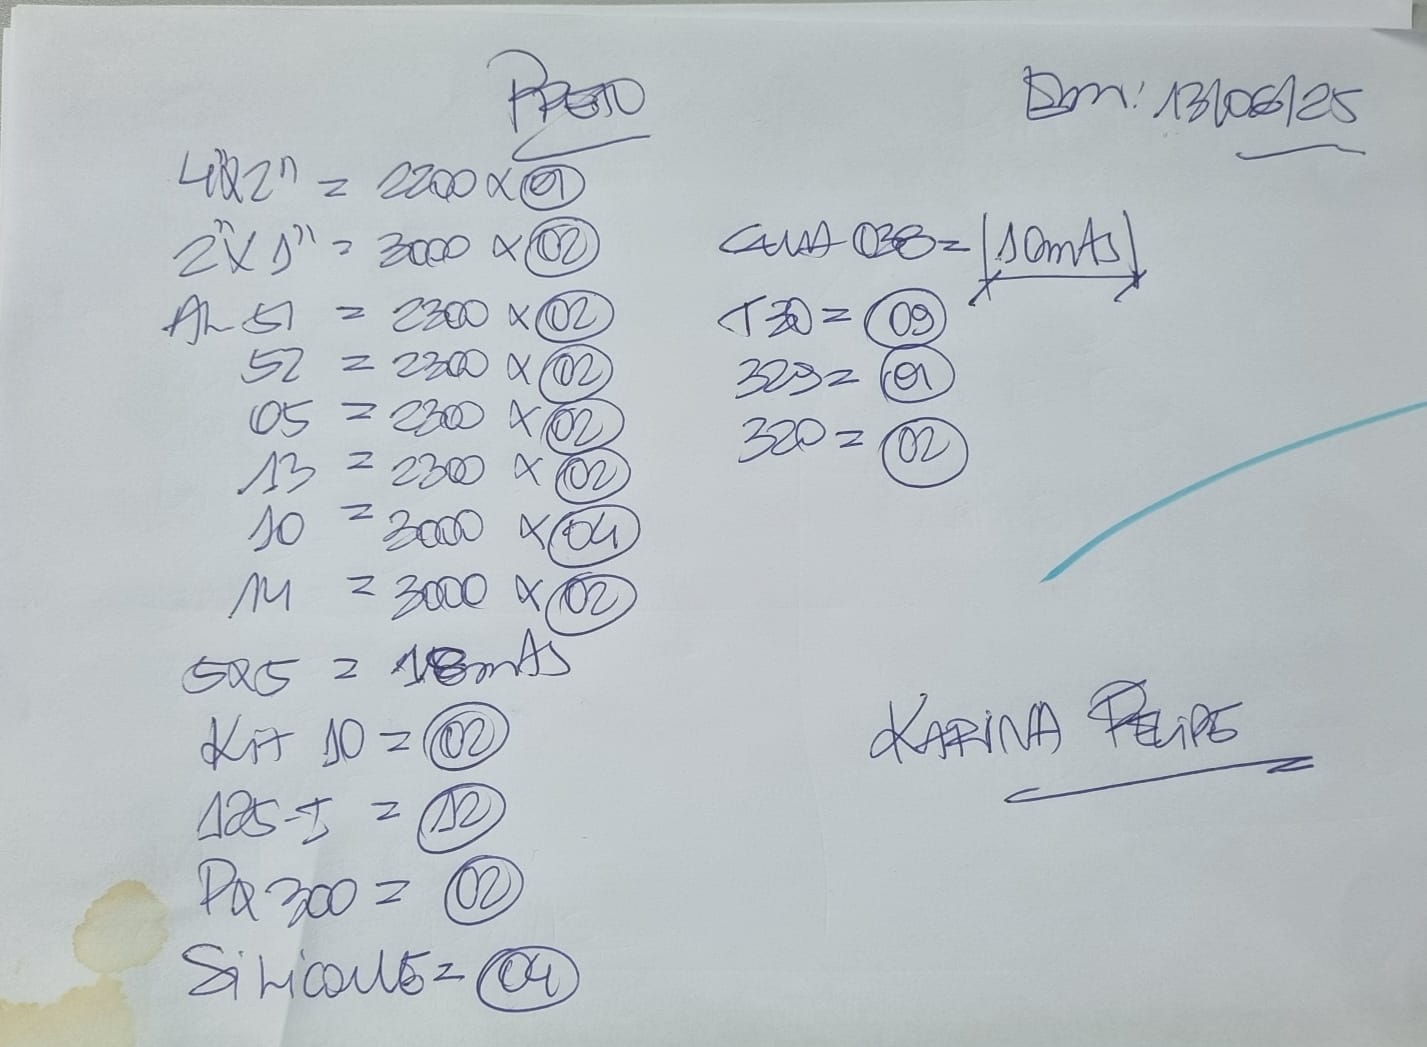 PRETO
Dom: 13/06/25
4"X2" = 2200 X 01
2"X1" = 3000 X 02
AL 51 = 2300 X 02
52 = 2300 X 02
05 = 2300 X 02
13 = 2300 X 02
10 = 3000 X 04
14 = 3000 X 02
5X5 = 18mts
Kit 10 = 02
125-T = 12
PQ 300 = 02
SiLiCONE = 04
GUA 038 = 10mts
T30 = 09
329 = 01
320 = 02
KARINA FELIPE